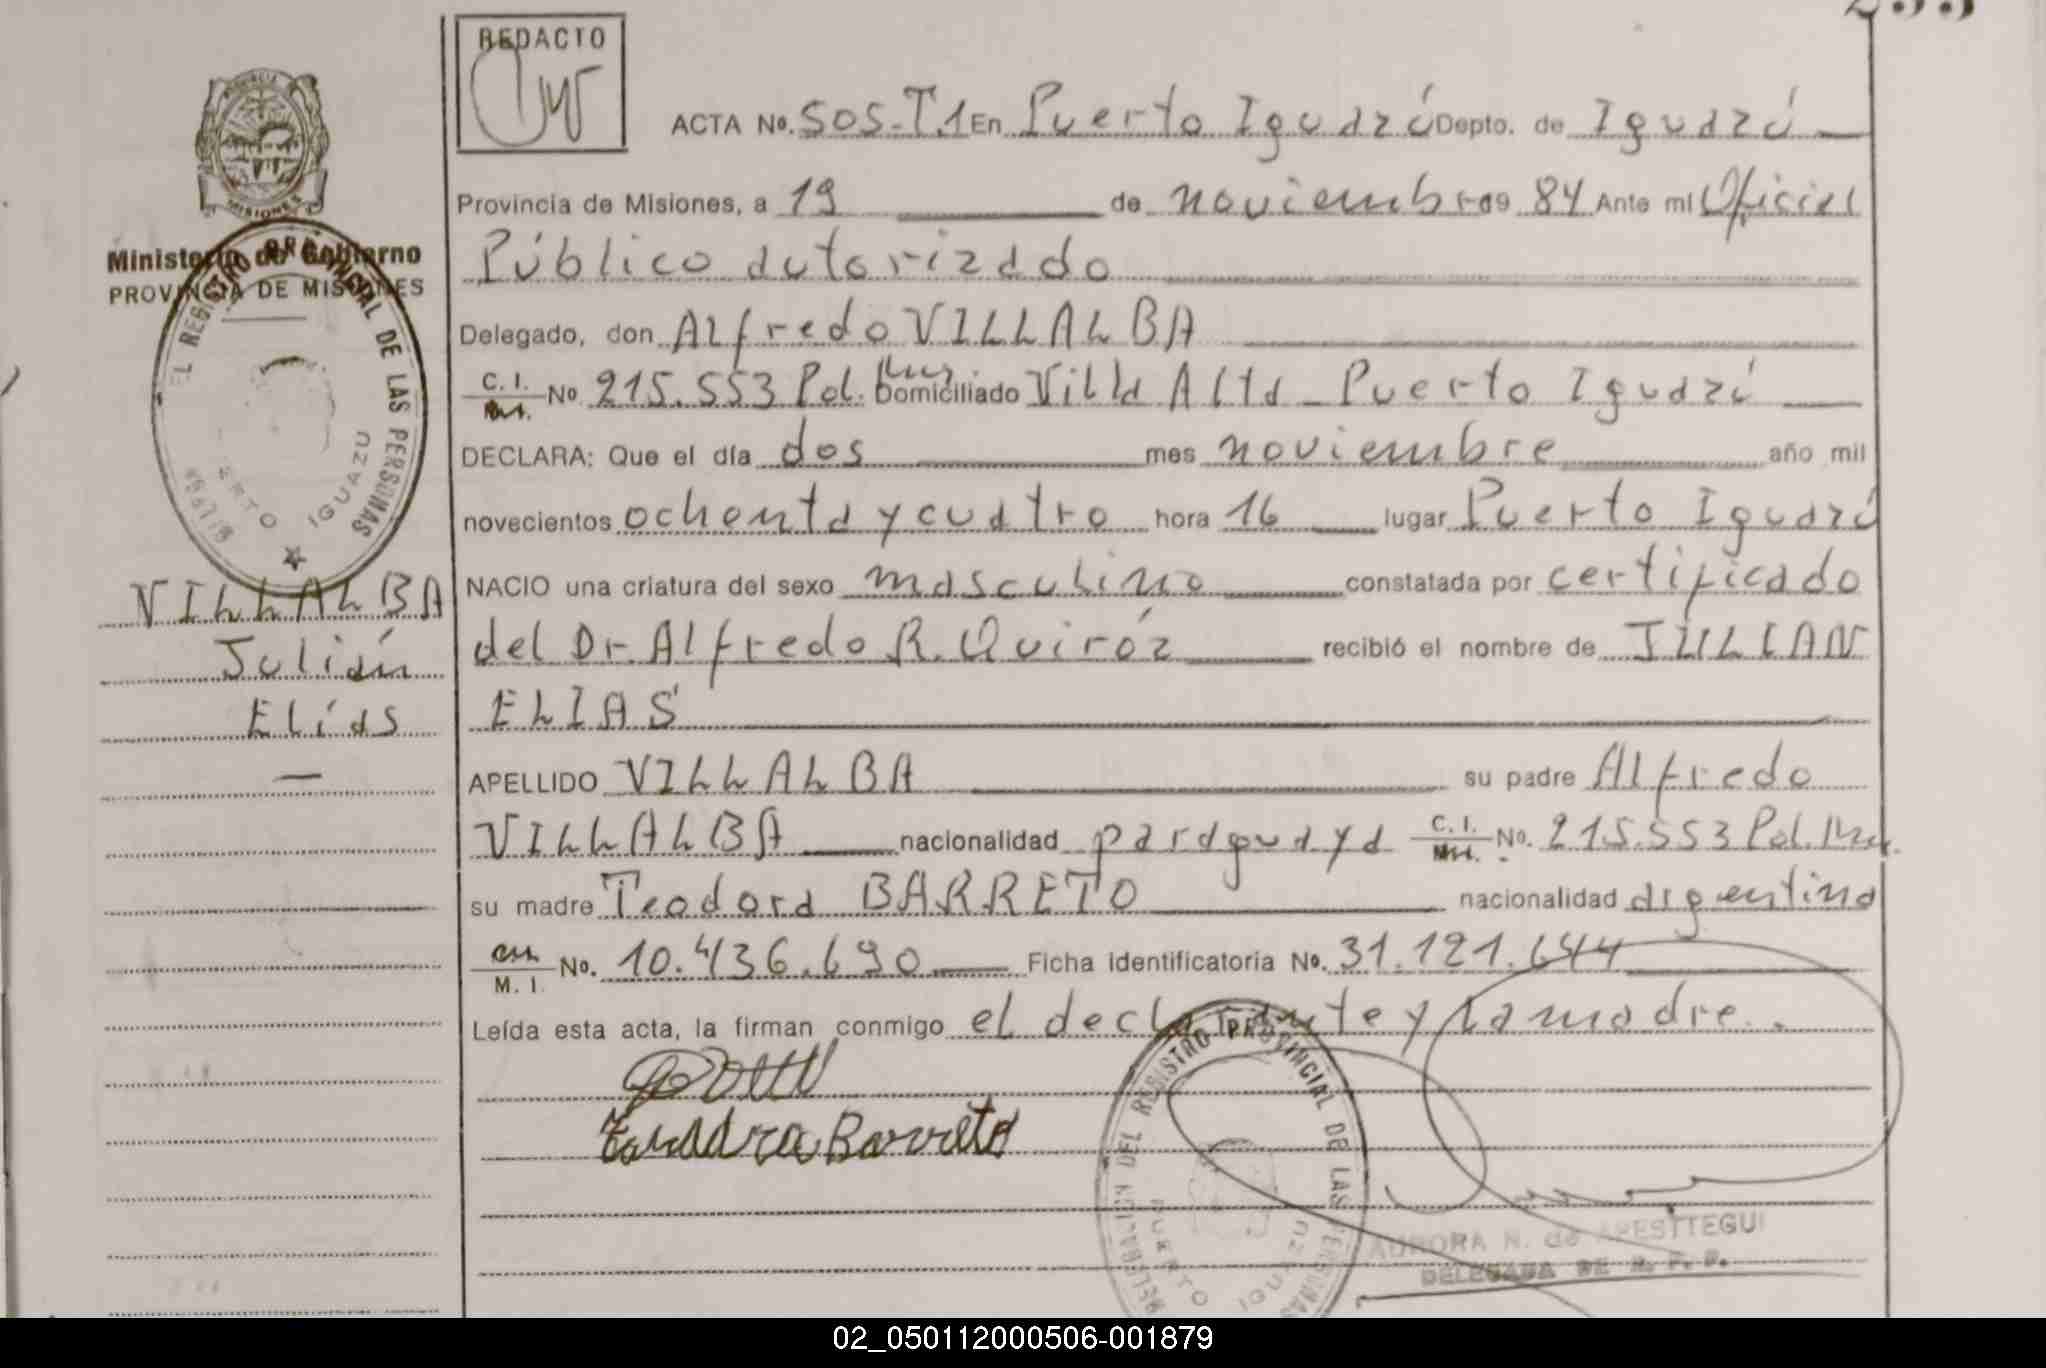 REDACTO
ACTA No. 505-T.1 En Puerto Iguazú Depto. de Iguazú
Provincia de Misiones, a 19 de noviembre 19 84 Ante mi Oficial
Público autorizado
Delegado, don Alfredo VILLALBA
C. I. No 215.553 Pol. Mnes Domiciliado Villa Alta - Puerto Iguazú
DECLARA: Que el día dos mes noviembre año mil
novecientos ochenta y cuatro hora 16 lugar Puerto Iguazú
NACIO una criatura del sexo masculino constatada por certificado
del Dr. Alfredo R. Quiróz recibió el nombre de JULIAN
ELIAS
APELLIDO VILLALBA su padre Alfredo
VILLALBA nacionalidad paraguaya C. I. No. 215.553 Pol. Mnes.
su madre Teodora BARRETO nacionalidad argentina
M. I. No. 10.436.690 Ficha identificatoria No. 31.121.644
Leída esta acta, la firman conmigo el declarante y la madre.
Barreto
AURORA N. de APESTTEGUI
DELEGADA DE R. P. P.
PROVINCIA
MISIONES
Ministerio de Gobierno
PROVINCIA DE MISIONES
DEL REGISTRO PROVINCIAL DE LAS PERSONAS
PUERTO IGUAZU
VILLALBA
Julián
Elías
DEL REGISTRO PROVINCIAL DE LAS PERSONAS
PUERTO IGUAZU
02_050112000506-001879